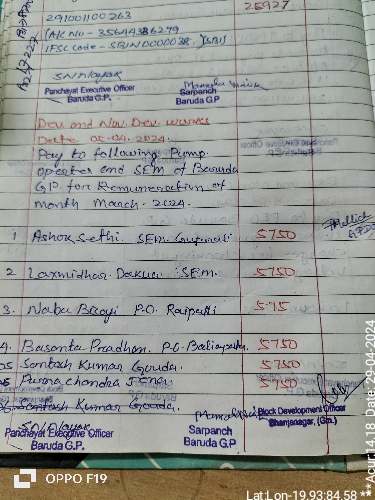 25927
291001100263
(A/K No - 35644386279
IFSC Code - SBIN0000038 (SBI)
SN Nayak
Panchayat Executive Officer
Baruda G.P.
Sarpanch
Baruda G.P.
Dev and Nov. Dev. works
Date 05-04-2024.
Pay to following Pump
operator and SEM of Baruda
G.P. for Remuneration of
month March - 2024.
1 Ashok Sethi. SEM. 5750
2 Laxmidhar Dakua. SEM. 5750
3. Nabu Bisoyi P.O. Raipalli 575
4. Basanta Pradhan. P.O. 5750
05 Santosh Kumar Gouda. 5750
Purna chandra Jena 5750
Santosh Kumar Gouda.
SN Nayak
Panchayat Executive Officer
Baruda G.P.
Sarpanch
Baruda G.P.
Block Development Officer
Bhanjanagar, (Gm.)
OPPO F19
Lat:Lon-19.93:84.58
**Acur:14.18 Date 29-04-2024